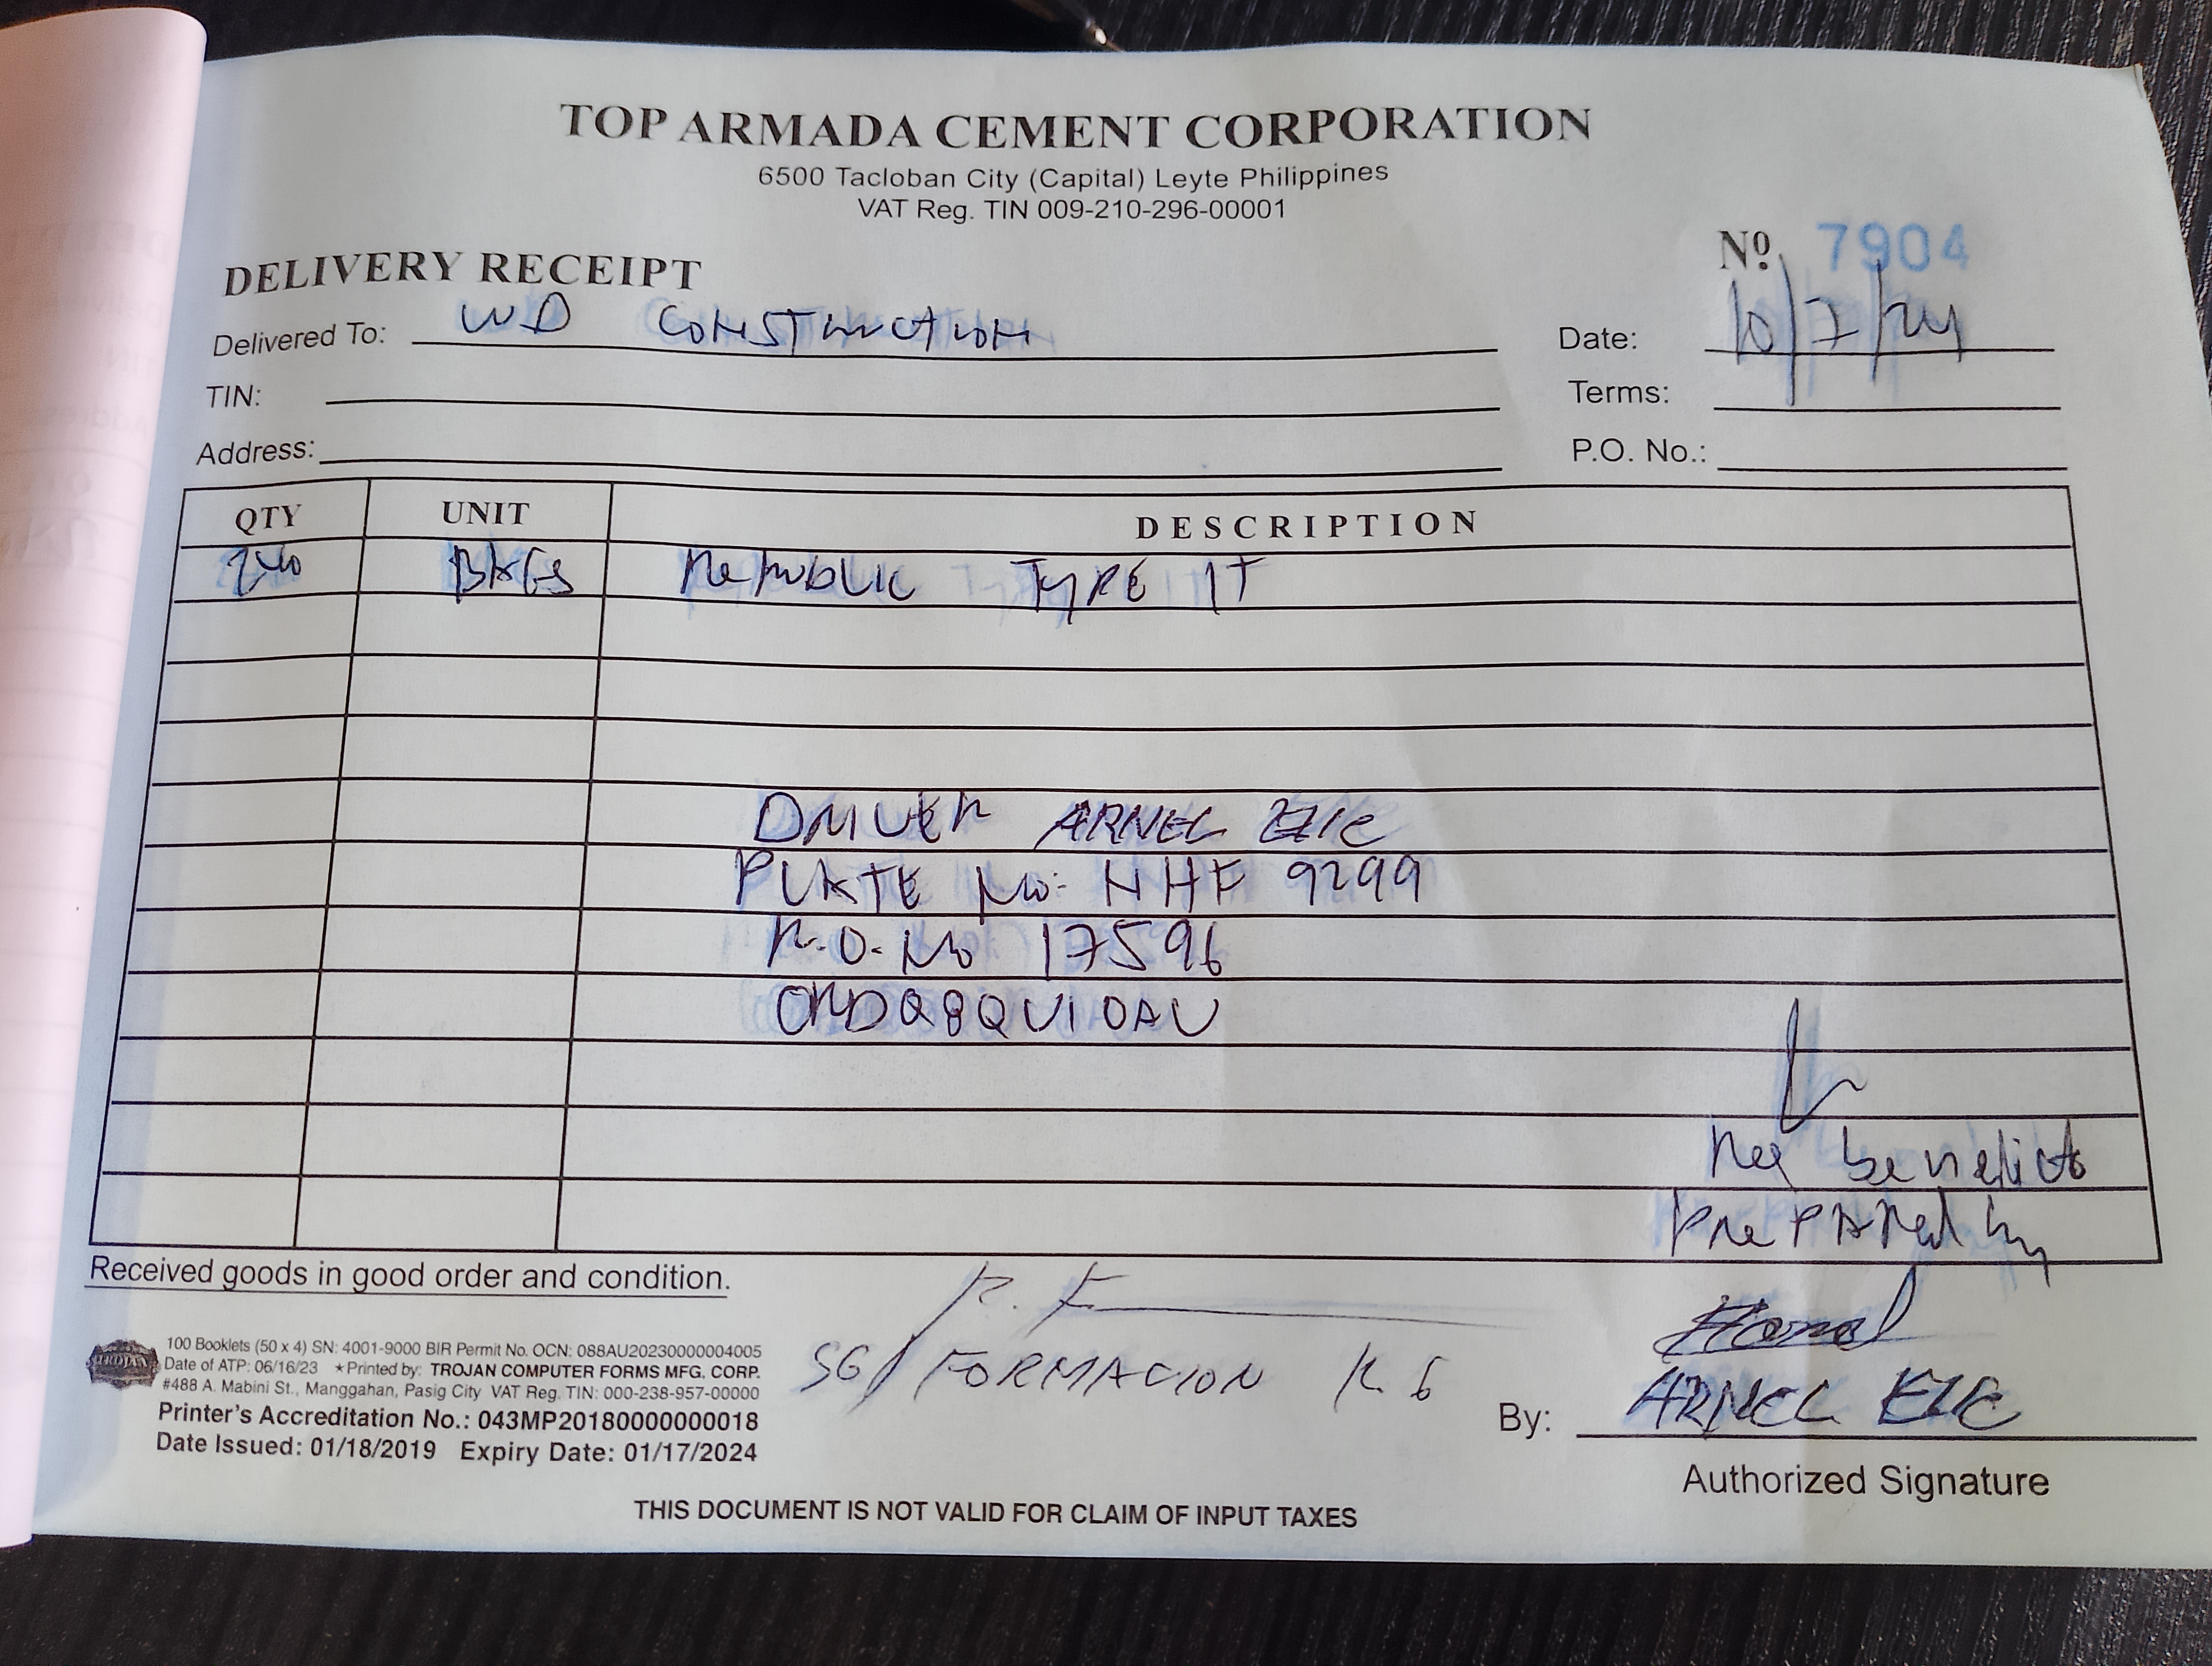 TOP ARMADA CEMENT CORPORATION
6500 Tacloban City (Capital) Leyte Philippines
VAT Reg. TIN 009-210-296-00001
Nº 7904
DELIVERY RECEIPT
Delivered To: WD CONSTRUCTION
Date: 10/7/24
TIN:
Terms:
Address:
P.O. No.:
QTY UNIT DESCRIPTION
240 BAGS Republic TYPE 1T
DRIVER ARNEL
PLATE No: NHF 9299
R.O. No 17596
ORDQ8QVIOAU
benedicto
Prepared by
Received goods in good order and condition.
R. F
SG/ FORMACION R. G
100 Booklets (50 x 4) SN: 4001-9000 BIR Permit No. OCN: 088AU20230000004005
Date of ATP: 06/16/23 ★Printed by: TROJAN COMPUTER FORMS MFG. CORP.
#488 A. Mabini St., Manggahan, Pasig City VAT Reg. TIN: 000-238-957-00000
Printer's Accreditation No.: 043MP20180000000018
Date Issued: 01/18/2019 Expiry Date: 01/17/2024
TROJAN
By: ARNEL
Authorized Signature
THIS DOCUMENT IS NOT VALID FOR CLAIM OF INPUT TAXES